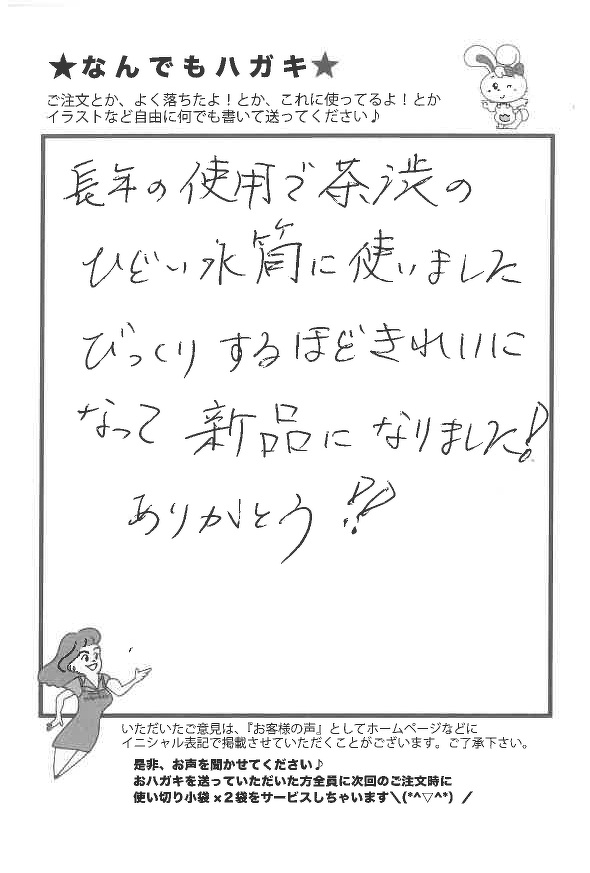 ★なんでもハガキ★
ご注文とか、よく落ちたよ!とか、これに使ってるよ!とか
イラストなど自由に何でも書いて送ってください♪
長年の使用で茶渋の
ひどい水筒に使いました
びっくりするほどきれいに
なって新品になりました!
ありがとう!!
いただいたご意見は、『お客様の声』としてホームページなどに
イニシャル表記で掲載させていただくことがございます。ご了承下さい。
是非、お声を聞かせてください♪
おハガキを送っていただいた方全員に次回のご注文時に
使い切り小袋×2袋をサービスしちゃいます＼(*^▽^*) ／